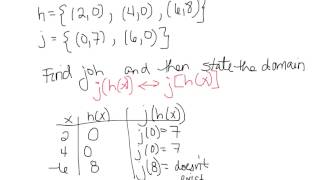 h = {(2,0), (4,0), (6,8)}
j = {(0,7), (6,0)}
Find joh and then state the domain
j(h(x) ↔ j[h(x)]
x h(x) j(h(x))
2 0 j(0) = 7
4 0 j(0) = 7
6 8 j(8) = doesn't
exist